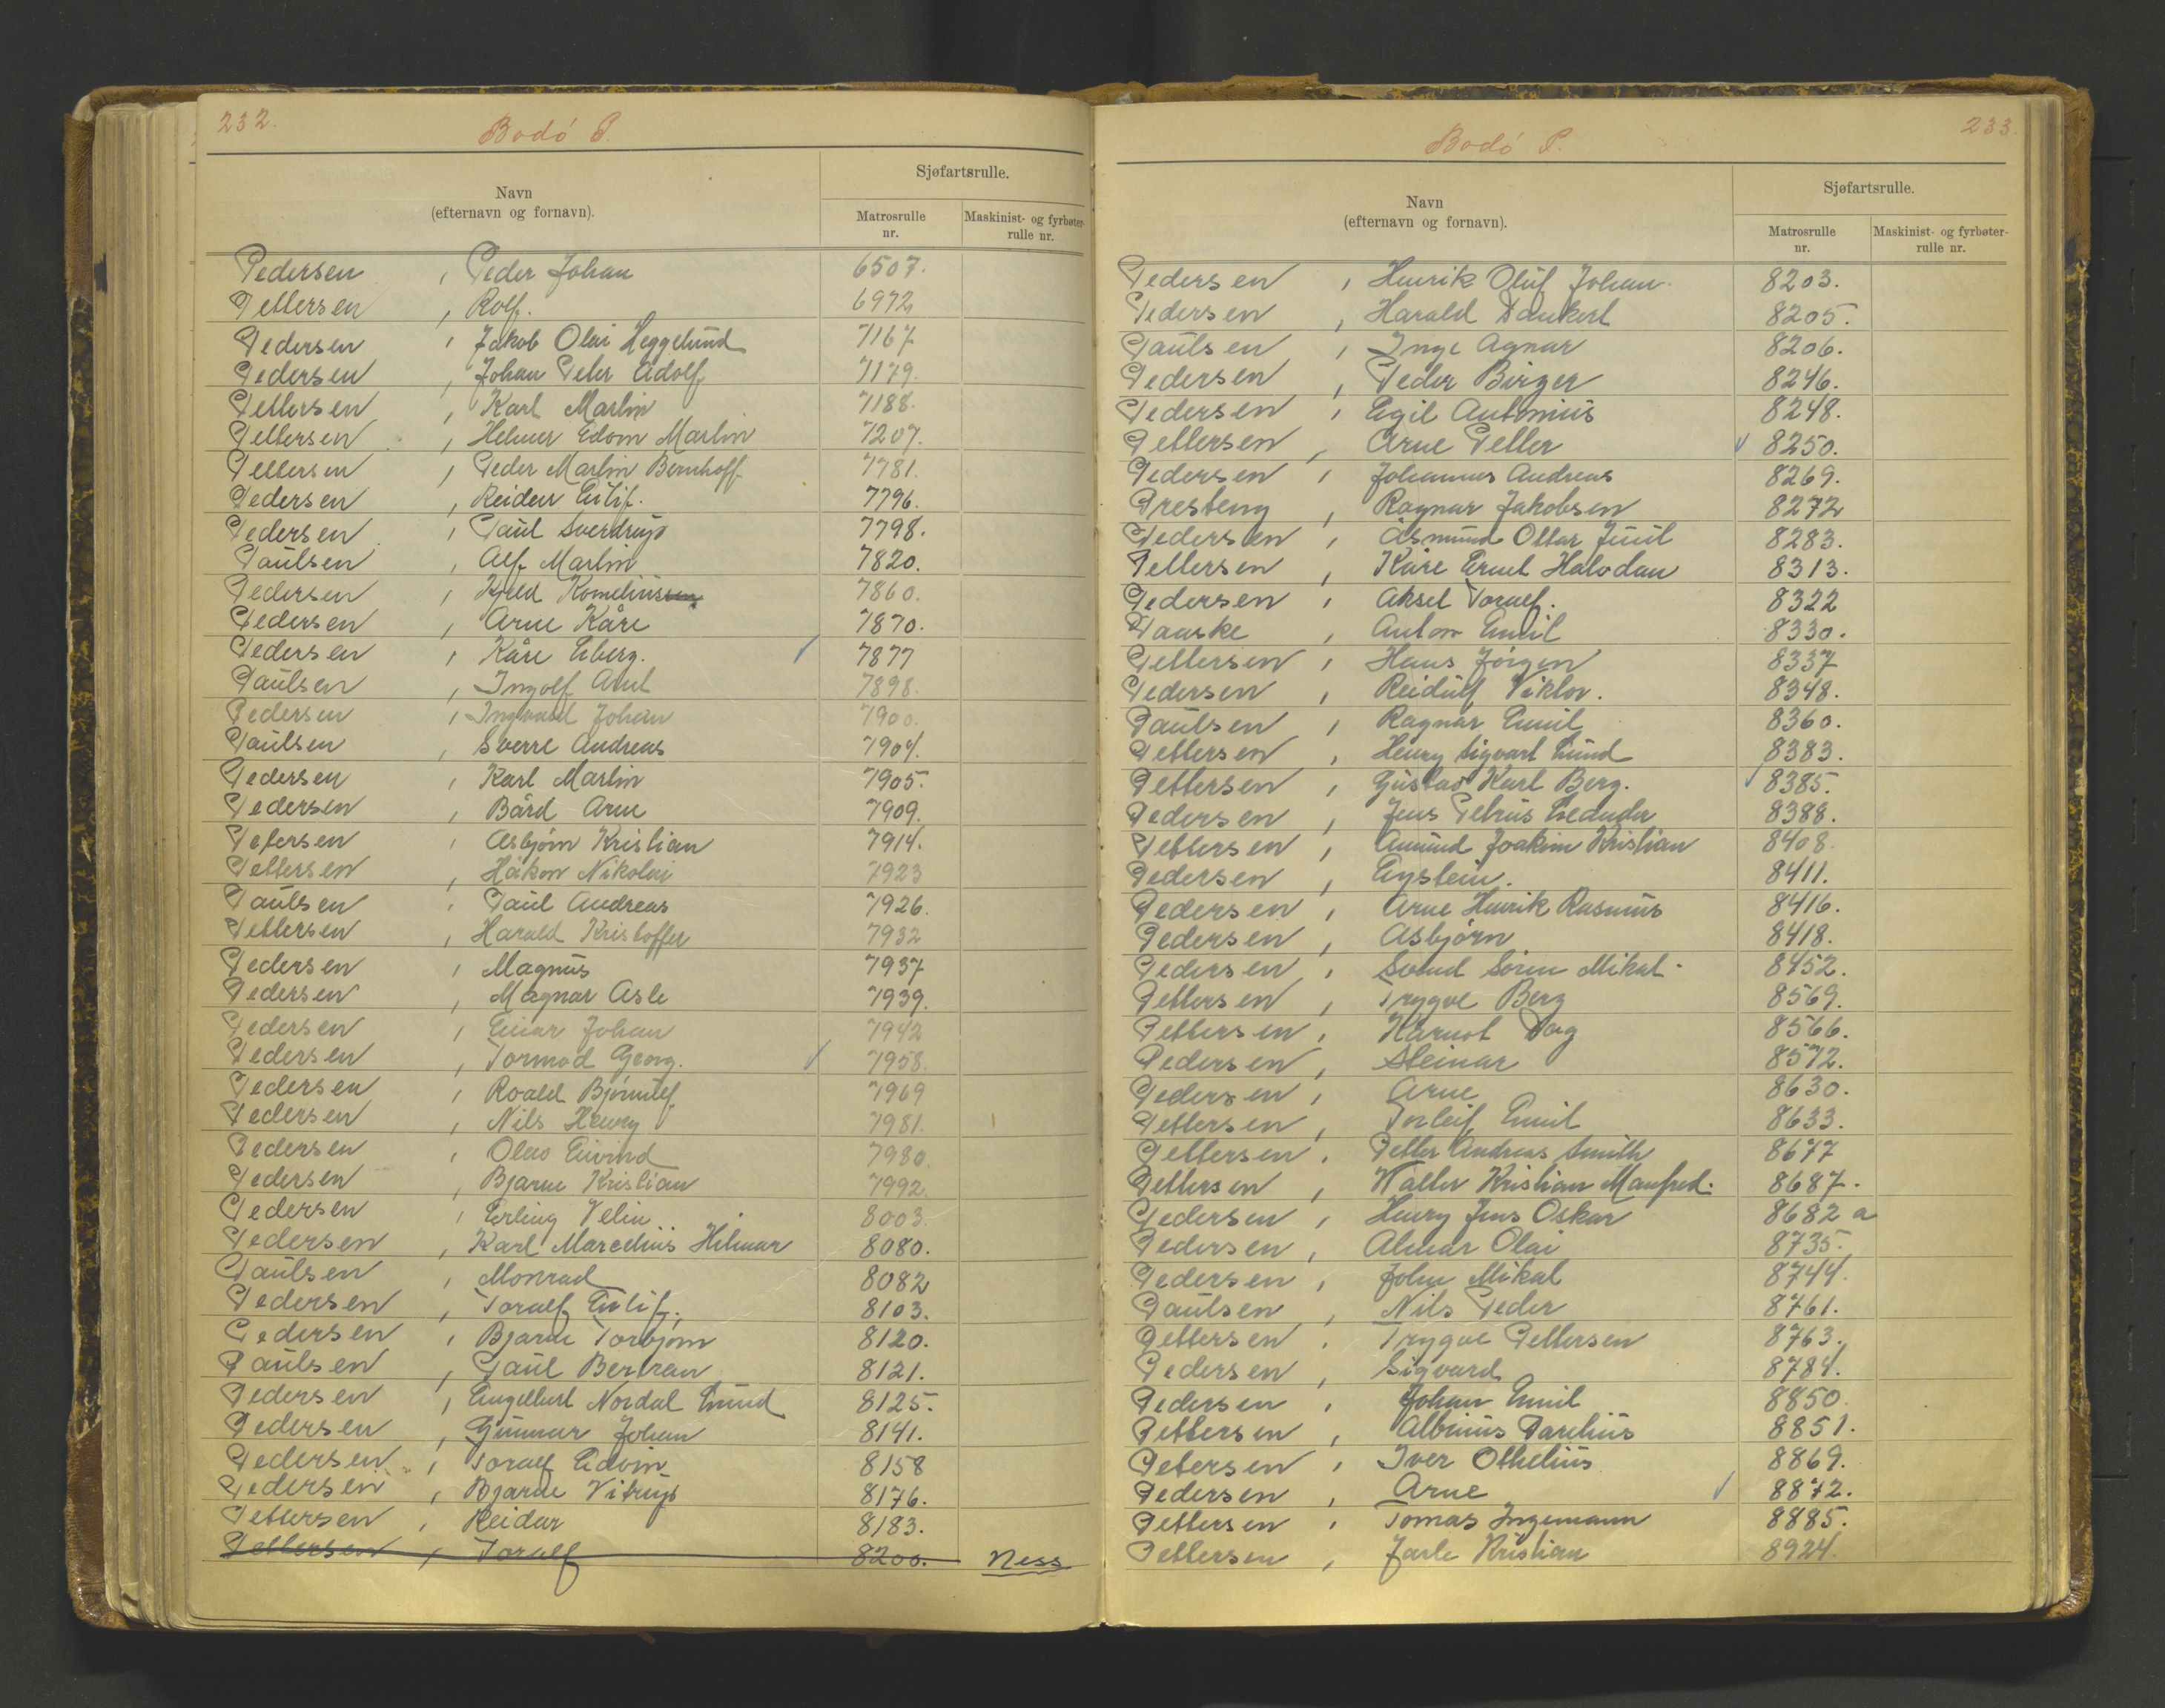 232.
Bodó P.
Navn
(efternavn og fornavn).
Sjøfartsrulle.
Matrosrulle
nr.
Maskinist- og fyrbøter-
rulle nr.
Pedersen , Peder Johan 6507.
Pettersen , Rolf. 6972
Pedersen , Jakob Olai Heggelund 7167
Pedersen , Johan Peter Adolf 7179.
Pettersen , Karl Martin 7188.
Pettersen , Helmer Edom Martin 7207.
Pettersen , Peder Martin Bernhoff 7781.
Pedersen , Reidar Eilif. 7796.
Pedersen , Paul Sverdrup 7798.
Paulsen , Alf Martin 7820.
Pedersen , Kjeld Kornelius 7860.
Pedersen , Arne Kåre 7870.
Pedersen , Kåre Eberg. 7877
Paulsen , Ingolf Arnt 7898.
Pedersen , Ingvald Johan 7900.
Paulsen , Sverre Andreas 7904.
Pedersen , Karl Martin 7905.
Pedersen , Bård Arne 7909.
Petersen , Asbjørn Kristian 7914.
Pettersen , Håkon Nikolai 7923
Paulsen , Paul Andreas 7926.
Pettersen , Harald Kristoffer 7932
Pedersen , Magnus 7937
Pedersen , Magnar Asle 7939.
Pedersen , Einar Johan 7942
Pedersen , Tormod Georg. 7958.
Pedersen , Roald Bjørnulf 7969
Pedersen , Nils Henry 7981.
Pedersen , Olav Eivind 7980.
Pedersen , Bjarne Kristian 7992.
Pedersen , Erling Velin 8003.
Pedersen , Karl Marcelius Hilmar 8080.
Paulsen , Monrad 8082
Pedersen , Toralf Eilif. 8103.
Pedersen , Bjarne Torbjørn 8120.
Paulsen , Paul Bertran 8121.
Pedersen , Engelbert Nordal Lund 8125.
Pedersen , Gunnar Johan 8141.
Pedersen , Toralf Edvin 8158
Pedersen , Bjarne Vitrup 8176.
Pettersen , Reidar 8183.
Pettersen , Toralf 8200. Ness
233.
Bodó P.
Navn
(efternavn og fornavn).
Sjøfartsrulle.
Matrosrulle
nr.
Maskinist- og fyrbøter-
rulle nr.
Pedersen , Henrik Oluf Johan. 8203.
Pedersen , Harald Dankert 8205.
Paulsen , Inge Agnar 8206.
Pedersen , Peder Birger 8246.
Pedersen , Egil Antonius 8248.
Pettersen , Arne Petter 8250.
Pedersen , Johannes Andreas 8269.
Presteng , Ragnar Jakobsen 8272
Pedersen , Asmund Ottar Juul 8283.
Pettersen , Kåre Ernst Halvdan 8313.
Pedersen , Aksel Toralf. 8322
Paaske , Anton Emil 8330.
Pettersen , Hans Jørgen 8337
Pedersen , Reidulf Viktor. 8348.
Paulsen , Ragnar Emil 8360.
Pettersen , Henry Sigvart Lund 8383.
Pettersen , Gustav Karl Berg. 8385.
Pedersen , Jens Petrus 8388.
Pettersen , Amund Joakim Kristian 8408.
Pedersen , Eystein. 8411.
Pedersen , Arne Henrik Rasmus 8416.
Pedersen , Asbjørn 8418.
Pedersen , Svend Søren Mikal. 8452.
Pettersen , Trygve Berg 8569.
Pettersen , Dag 8566.
Pedersen , Steinar 8572.
Pedersen , Arne 8630.
Pettersen , Torleif Emil 8633.
Pettersen , Petter Andreas Smith 8677
Pettersen , Walter Kristian Manfred. 8687.
Pedersen , Henry Jens Oskar 8682 a
Pedersen , Almar Olai 8735.
Pedersen , John Mikal 8744.
Paulsen , Nils Peder 8761.
Pettersen , Trygve Pettersen 8763.
Pedersen , Sigvard 8784.
Pedersen , Johan Emil 8850.
Pettersen , Albinius Parelius 8851.
Petersen , Iver Othelius 8869.
Pedersen , Arne 8872.
Pettersen , Tomas Ingemann 8885.
Pettersen , Jarle Kristian 8924.